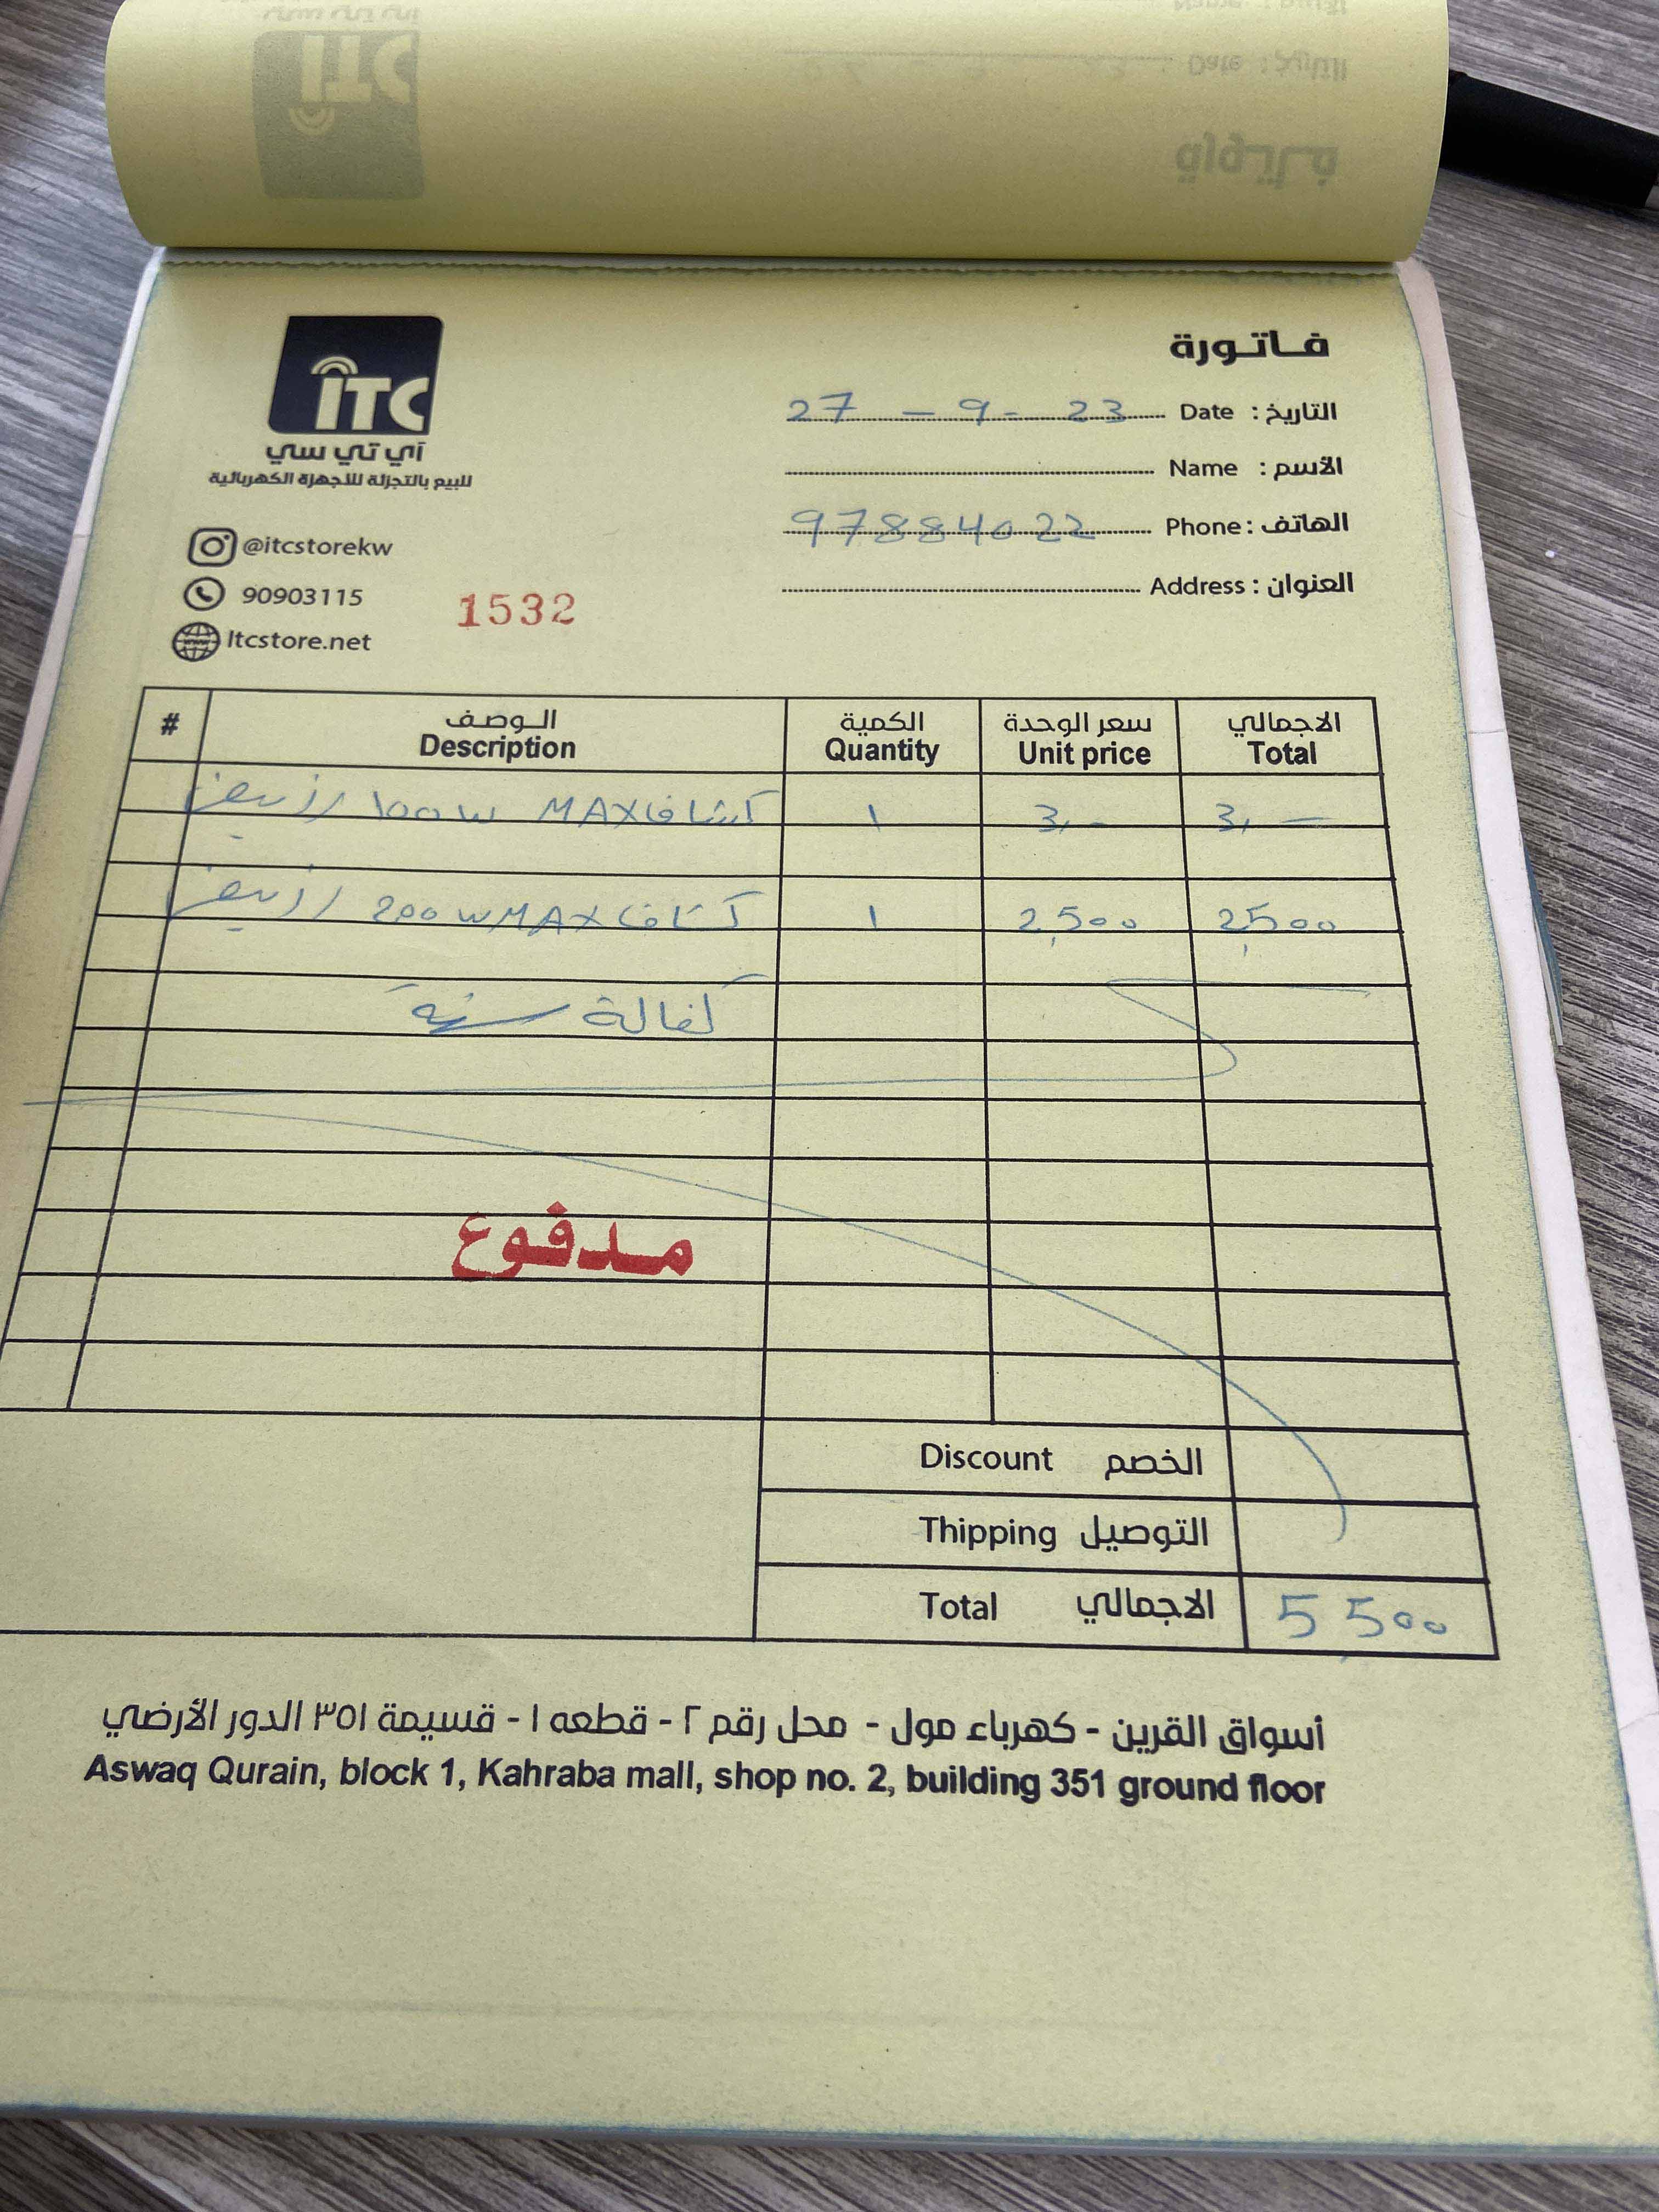 فاتورة
ITC
آي تي سي
للبيع بالتجزئة للأجهزة الكهربائية
@itcstorekw
90903115
Itcstore.net
1532
التاريخ : Date 27 - 9 - 23
الأسم : Name
الهاتف : Phone 97884022
العنوان : Address
# الوصف الكمية سعر الوحدة الاجمالي
Description Quantity Unit price Total
كشاف MAX 100W / ابيض 1 3,- 3,-
كشاف MAX 200W / ابيض 1 2,500 2,500
كفالة سنة
مدفوع
Discount الخصم
Thipping التوصيل
Total الاجمالي 5,500
أسواق القرين - كهرباء مول - محل رقم ٢ - قطعه ١ - قسيمة ٣٥١ الدور الأرضي
Aswaq Qurain, block 1, Kahraba mall, shop no. 2, building 351 ground floor